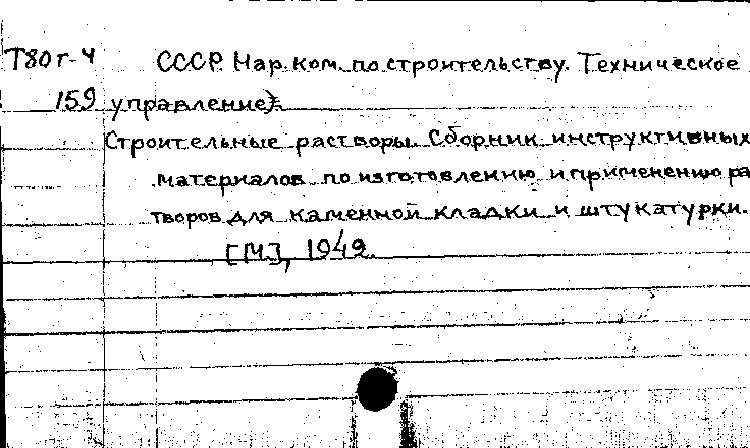 Т80г-4 СССР. Нар.ком. по строительству. Техническое
159 управление).
Строительные растворы. Сборник инструктивных
материалов по изготовлению и применению ра
творов для каменной кладки и штукатурки.
[М], 1949.